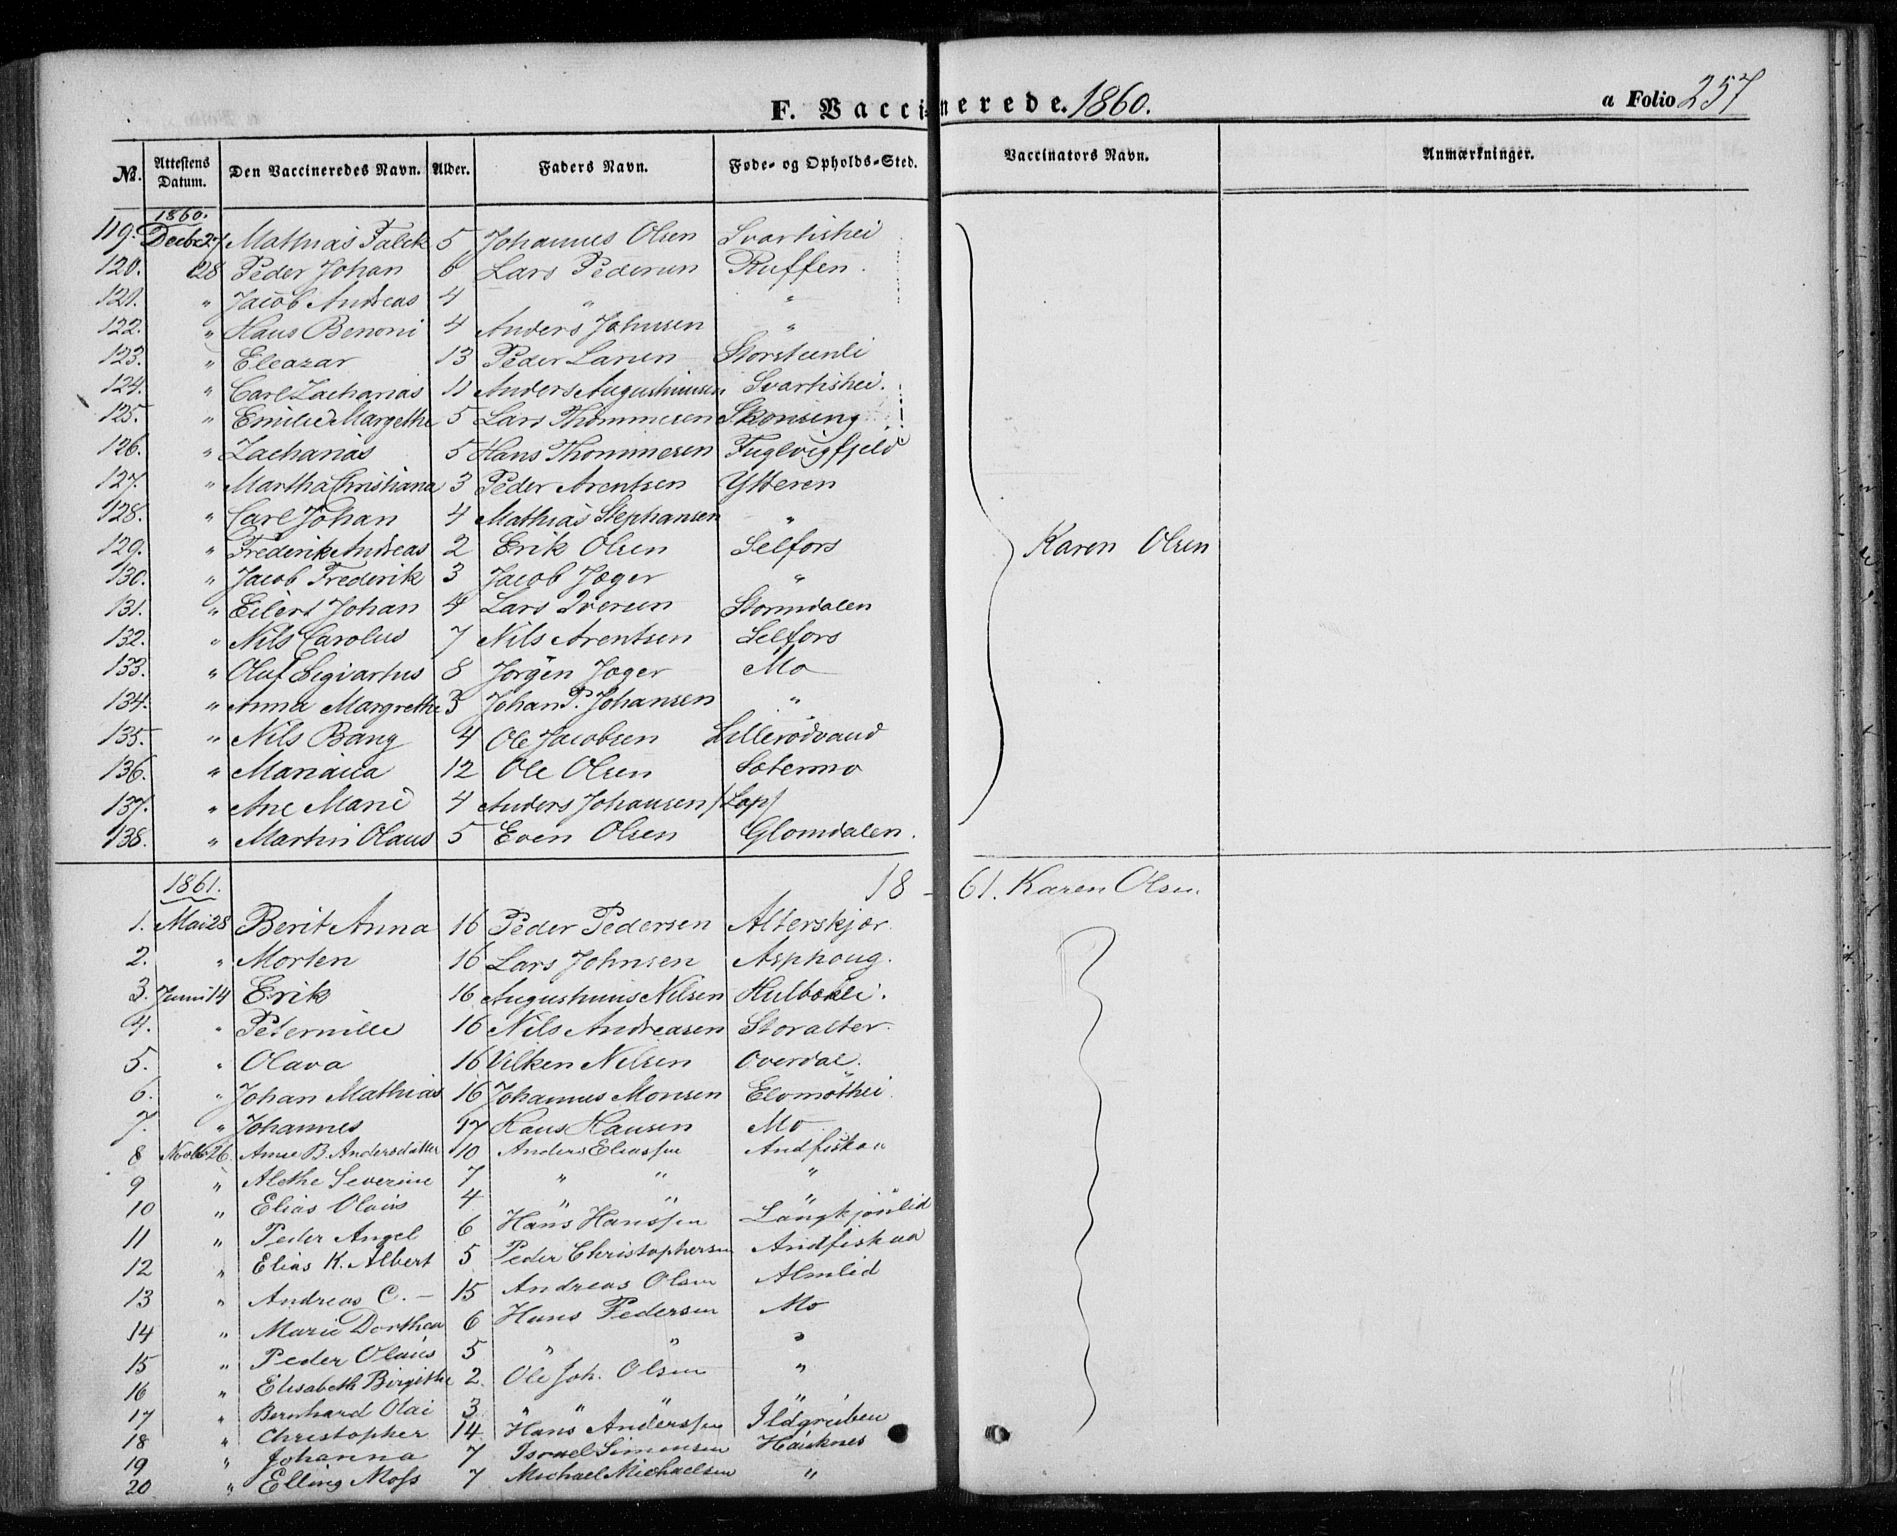 F. Vaccinerede. 1860. a Folio 257
No. Attestens Datum. Den Vaccineredes Navn. Alder. Faders Navn. Føde- og Opholds-Sted. Vaccinators Navn. Anmærkninger.
1860.
119. Decbr 27 Mathias Falck 5 Johannes Olsen Svartishei
120. 28 Peder Johan 6 Lars Pedersen Ruffen.
121. " Jacob Andreas 4 " "
122. " Hans Benoni 4 Anders Johnsen "
123. " Eleazar 13 Peder Larsen Storsteenli
124. " Carl Zacharias 11 Anders Augustinusen Svartishei.
125. " Emilie Margethe 5 Lars Thommesen Skonseng
126. " Zacharias 5 Hans Thommesen Fuglvigfjeld
127. " Martha Christiana 3 Peder Arentsen Ytteren
128. " Carl Johan 4 Mathias Stephansen "
129. " Frederik Andreas 2 Erik Olsen Selfors Karen Olsen
130. " Jacob Frederik 3 Jacob Jæger "
131. " Eilert Johan 4 Lars Iversen Stormdalen
132. " Nils Carolus 7 Nils Arentsen Selfors
133. " Oluf Sigvartus 8 Jørgen Jæger Mo
134. " Anna Margrethe 3 Johan P. Johansen "
135. " Nils Bang 4 Ole Jacobsen Lillerødvand
136. " Mariana 12 Ole Olsen Sætermo
137. " Ane Marie 4 Anders Johansen /Lap/
138. " Martin Olaus 5 Even Olsen Glomdalen.
1861. 18 - 61. Karen Olsen
1. Mai 28 Berit Anna 16 Peder Pedersen Alterskjær
2. " Morten 16 Lars Johnsen Asphoug.
3. Juni 14 Erik 16 Augustinus Nilsen Hulbækli.
4. " Peternille 16 Nils Andreasen Storalter.
5. " Olava 16 Vilken Nilsen Overdal.
6. " Johan Mathias 16 Johannes Monsen Elvmøthei
7. " Johannes 17 Hans Hansen Mo
8 Novbr 26. Anne B. Andersdatter 10 Anders Eliassen Andfiskaa
9 " Alethe Severine 7 " " "
10 " Elias Olaus 4 " " "
11 " Peder Angel 6 Hans Hanssen Langkjønlid
12 " Elias K. Albert 5 Peder Christophersen Andfiskaa
13 " Andreas C. — 15 Andreas Olsen Almlid
14 " Marie Dorthea 6 Hans Pedersen Mo
15 " Peder Olaus 5 " " "
16 " Elisabeth Birgithe 2. Ole Joh. Olsen "
17 " Bernhard Olai 3 " " "
18 " Christopher 14 Hans Anderssen Ildgruben
19 " Johanna 7 Israel Simonsen Hauknes
20 " Elling Moss 7 Michael Michaelsen "